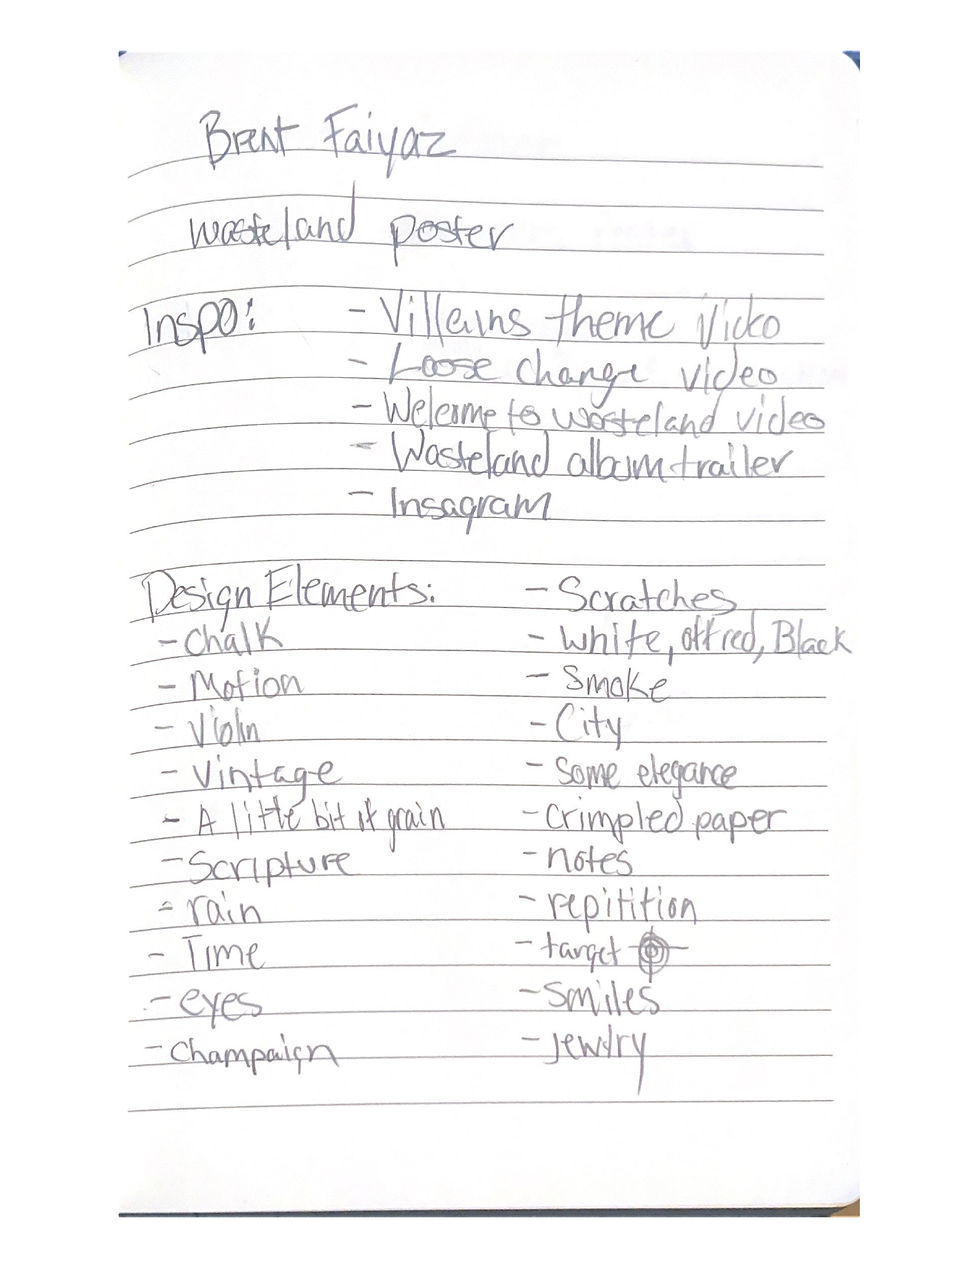 Brent Faiyaz
wasteland poster
Inspo: - Villains theme video
- Loose change video
- Welcome to wasteland video
- Wasteland album trailer
- Insagram
Design Elements: - Scratches
- Chalk - White, off red, Black
- Motion - Smoke
- Violin - City
- Vintage - Some elegance
- A little bit of grain - Crimpled paper
- Scripture - notes
- rain - repitition
- Time - target
- eyes - Smiles
- Champaign - Jewlry